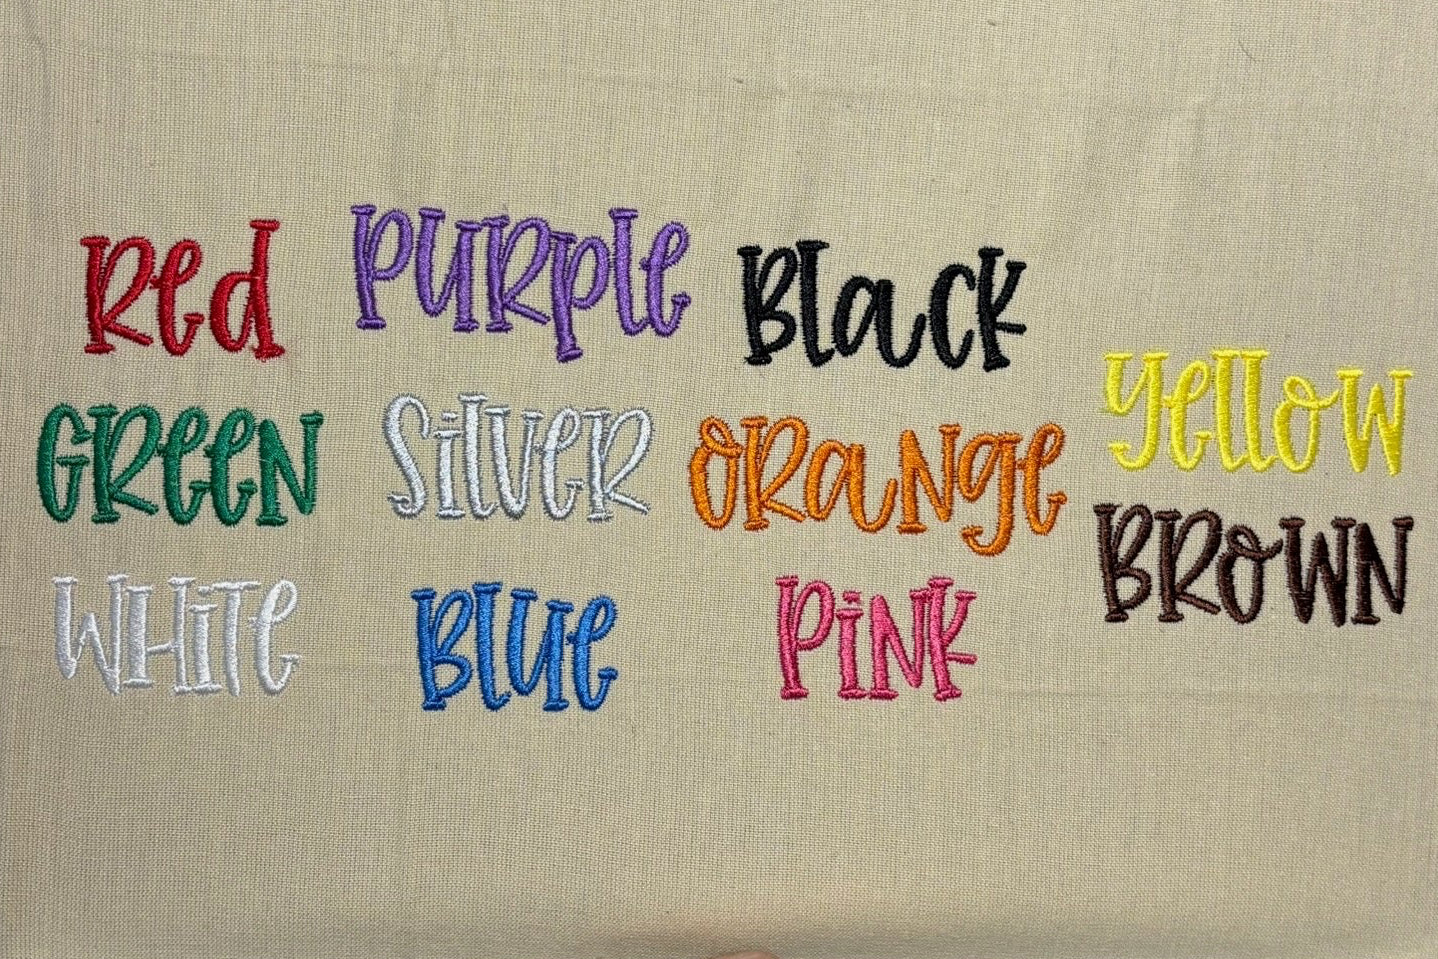 Red PURPle Black
Yellow
GREEN SilVeR ORaNge
BROWN
WHiTe BlUe PiNK